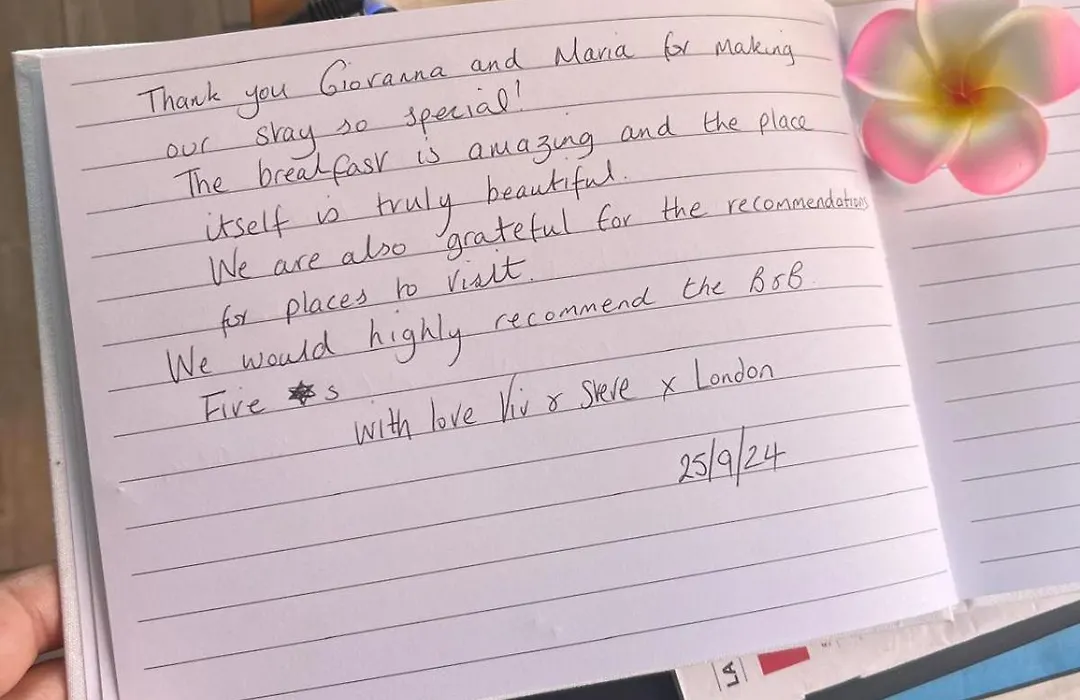 Thank you Giovanna and Maria for making
our stay so special!
The breakfast is amazing and the place
itself is truly beautiful.
We are also grateful for the recommendations
for places to visit.
We would highly recommend the B&B.
Five ★s
With love Viv & Steve x London
25/9/24
LA